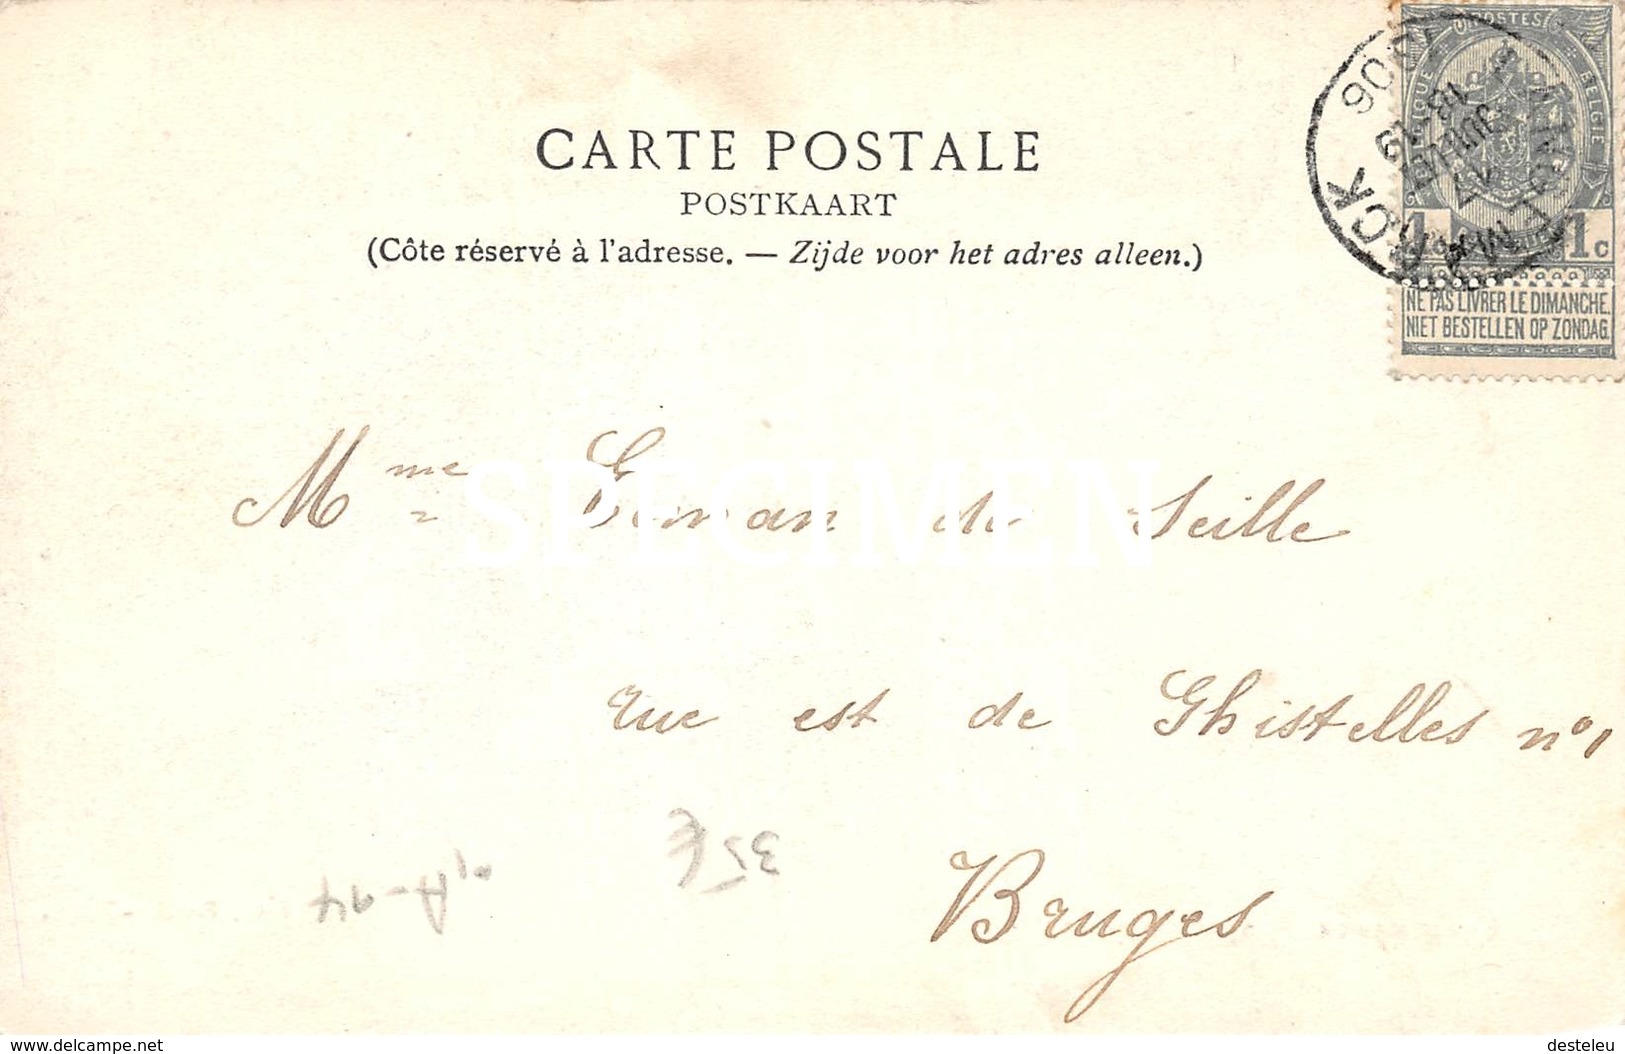 CARTE POSTALE
POSTKAART
(Côte réservé à l'adresse. — Zijde voor het adres alleen.)
POSTES
BELGIE
1c 1c
NE PAS LIVRER LE DIMANCHE.
NIET BESTELLEN OP ZONDAG.
1906
18-19
JUIL
Mme de Seille
SPECIMEN
rue est de Ghistelles n° 1
35 €
Bruges
delcampe.net
desteleu